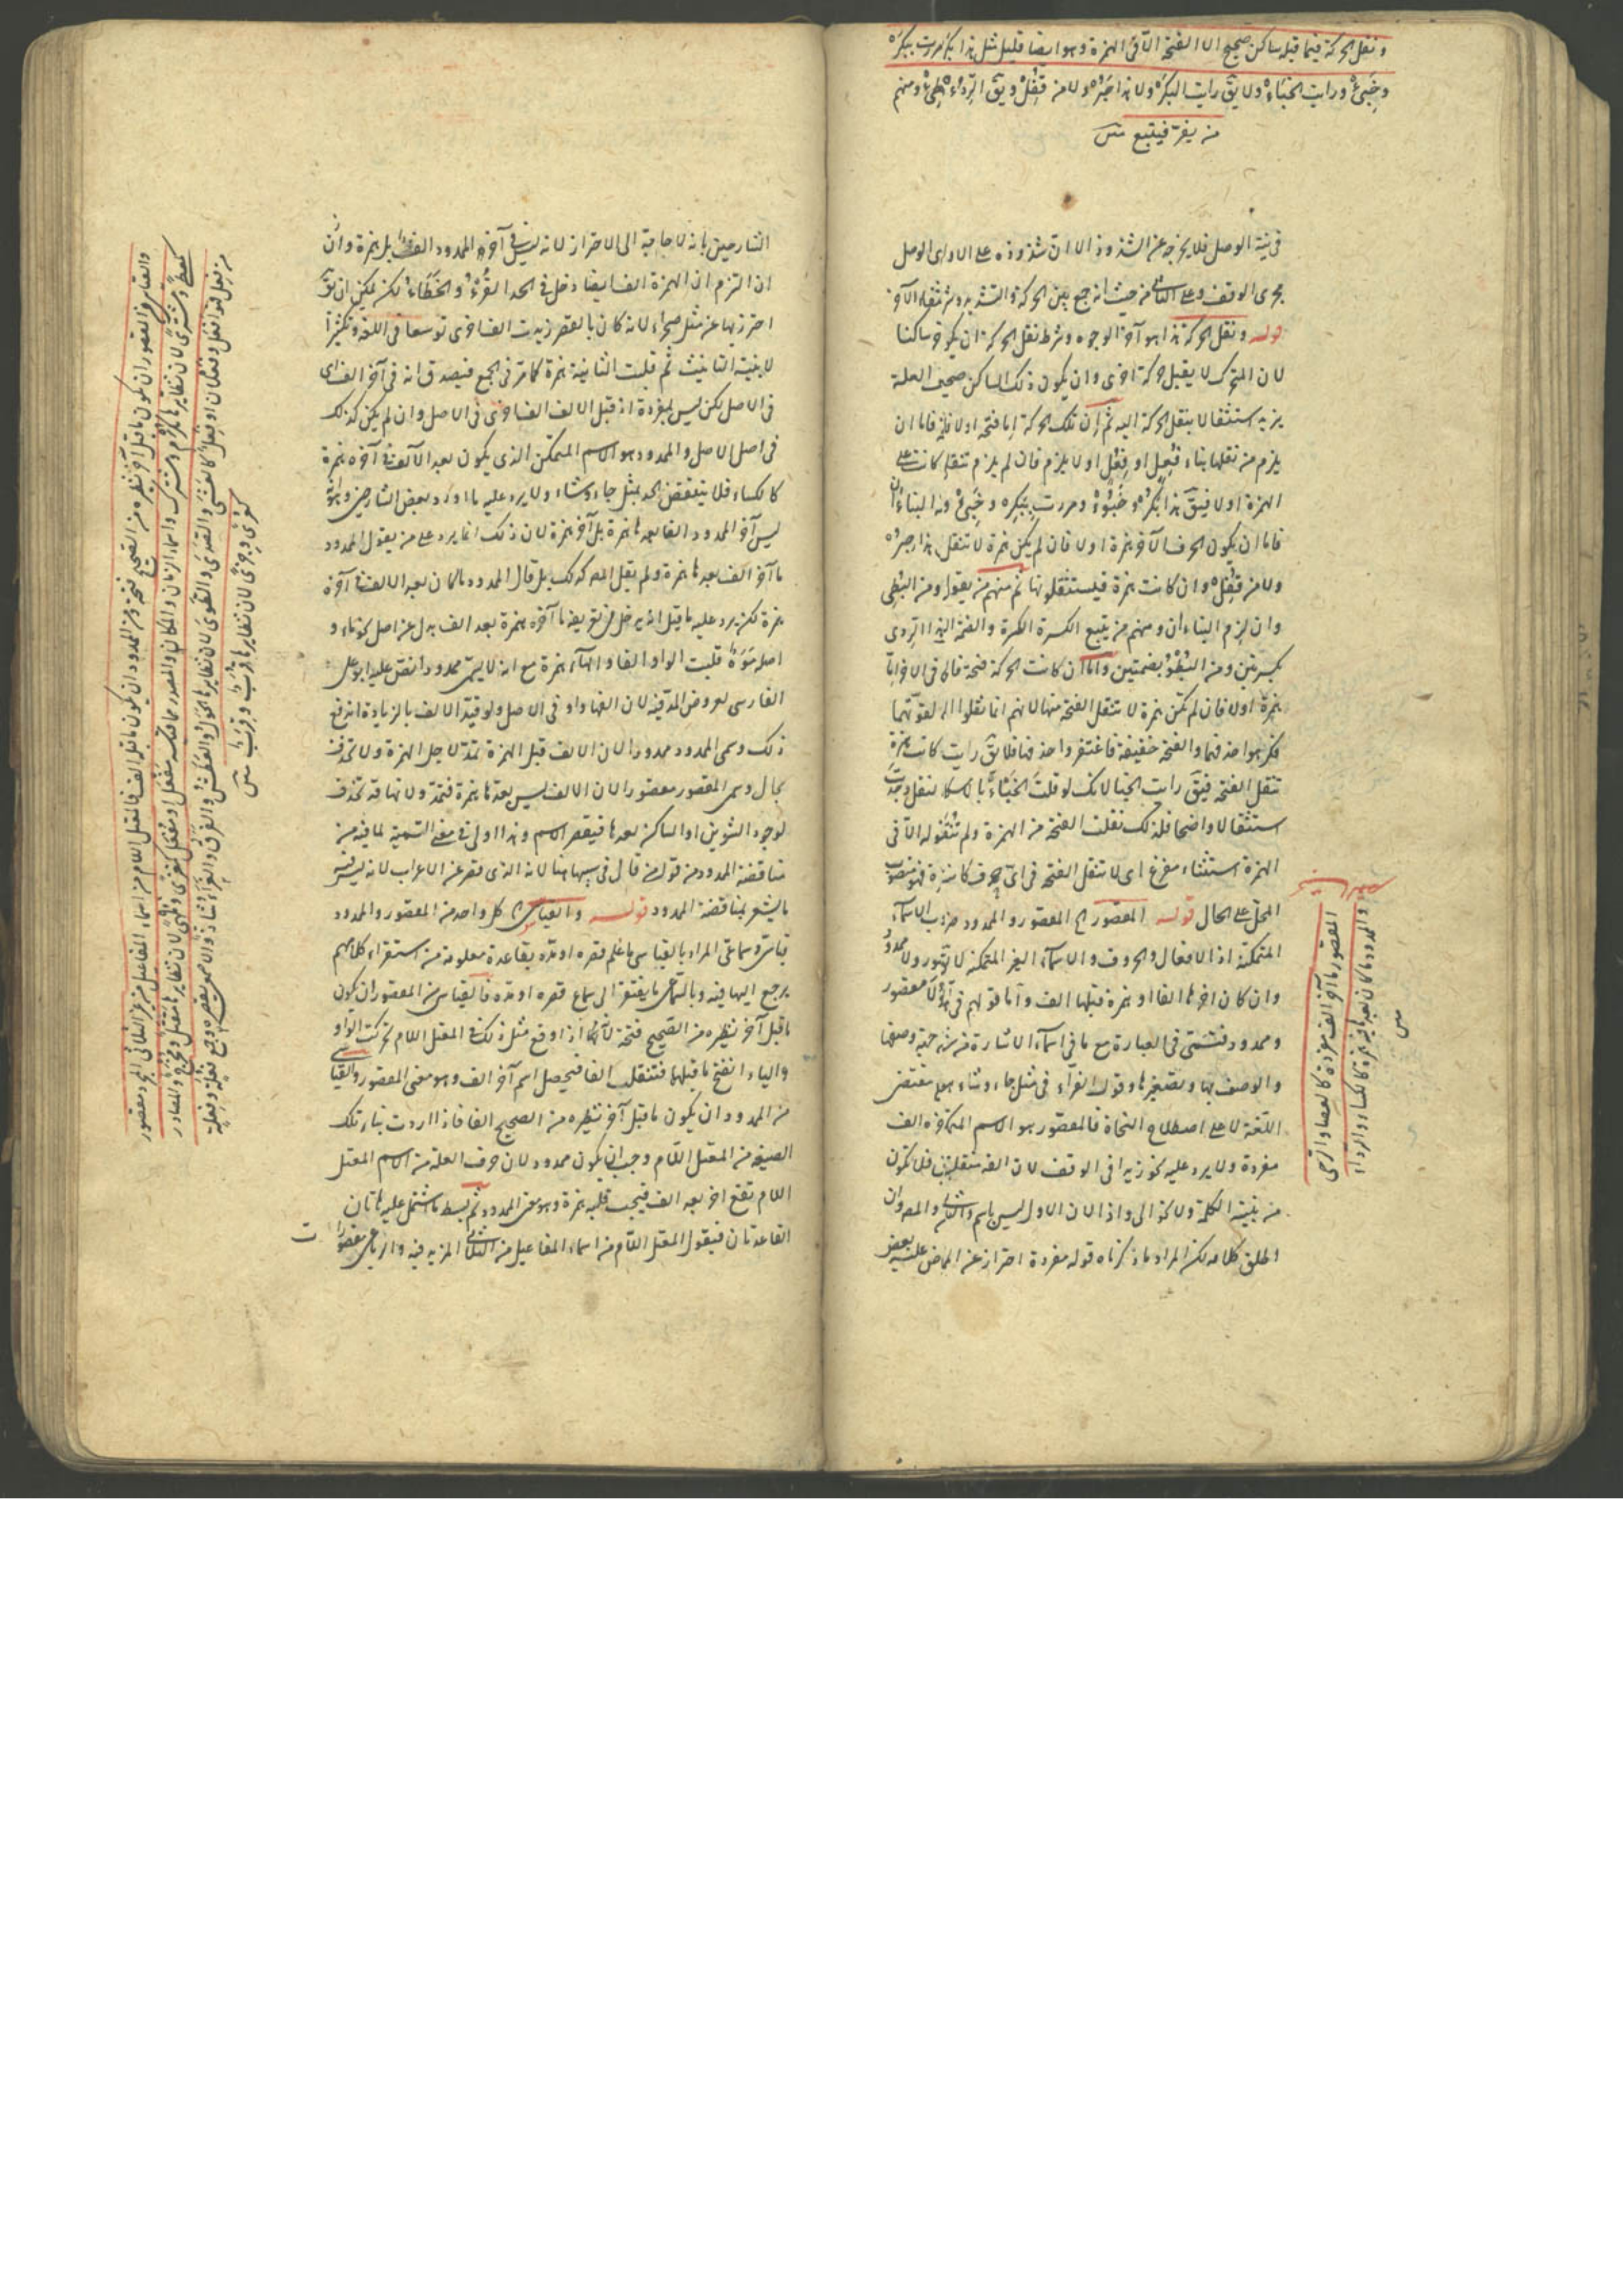 ونقل الحركة فيما قبله ساكن صحيح الا الفتحة الا فى الهمزة وهو ايضا قليل مثل هذا بكر ومررت ببكر
وخبئ ورايت الخباء ولا يق رايت البكر ولا هذا حبر ولا من قفل ويق الردء والبطئ ومنهم
من يفر فيتبع متن
فى نية الوصل فلا يخرجه عن الشذوذ الا ان شذوذه على الاول اى الوصل
مجرى الوقف وعلى الثانى من حيث انه جمع بين الحركة والتشديد وشرط الآخر
قوله ونقل الحركة هذا هو آخر الوجوه وشرط نقل الحركة ان يكون ساكنا
لان المتحرك لا يقبل حركة اخرى وان يكون ذلك الساكن صحيحا العلة
يزيد استثقالا بنقل الحركة اليه ثم ان تلك الحركة اما فتحة اولا فاما ان
يلزم من نقلها بناء فعل او فعل او لا يلزم فان لم يلزم تنقل كانت على
الهمزة اولا فيق هذا بكر وخبؤ ومررت ببكر وخبئ
فاما ان يكون الحرف الآخر همزة اولا فان لم يكن همزة لا تنقل هذا حبر
ولا من قفل وان كانت همزة فيستثقلونها ثم منهم من يقول ومن البطئ
وان لزم البناءان ومنهم من يتبع الكسرة الكسرة والضمة الردى
بكسرتين ومن البطؤ بضمتين واما ان كانت الحركة فتحة فالاخر اما
همزة اولا فان لم تكن همزة لا تنقل الفتحة منها لانهم انما نقلوا
فكرهوا حذفها والفتحة خفيفة فاغتفر واحذفها فلا يق رايت كانت همزة
تنقل الفتحة فيق رايت الخبا لانك لو قلت الخبأ بالاسكان
استثقالا واضحا فلذلك نقلت الفتحة من الهمزة ولم تنقل الا فى
الهمزة استثناء مفرغ اى لا تنقل الفتحة فى اى حرف كانت فهو منصوب
المحل على الحال قوله المقصور الخ المقصور والممدود ضرب الاسماء
المتمكنة اذ الافعال والحروف والاسماء الغير المتمكنة لا مقصور ولا ممدود
وان كان اخرها الفا او همزة قبلها الف واما قولهم فى هؤلاء مقصور
وممدود فتسمح فى العبارة مع ما فى اسماء الاشارة من شبه وصفها
والوصف بها وتصغيرها وقول القراء فى مثل جاء وشاء على مقتضى
اللغة لا على اصطلاح النحاة فالمقصور هو الاسم المتمكن آخره الف
مفردة ولا يرد عليه نحو زيدا فى الوقف لان الفه منقلبة فلا تكون
من بنية الكلمة ولا نحو الى واذا لان الاول ليس باسم والثانى والمص وان
اطلق كلامه لكن المراد ما ذكرناه قوله مفردة احتراز عن الممدود بعض
المقصور ما آخره الف مفردة كالعصا والرحى
والممدود ما كان بعدها فيه همزة كالكساء والرداء
متن
الشارحين بانه لا حاجة الى الاحتراز لانه ليس فى آخر الممدود الف بل همزة وان
ان التزم ان الهمزة الف ايضا دخل فى الحد القرء والخطاء لكن يمكن ان يق
احترز بها عن مثل صحراء لانه كان بالقصر زيدت الف اخرى توسعا فى اللغة وتكثيرا
لابنية التانيث ثم قلبت الثانية همزة كما مر فى الجمع فيصدق انه فى آخر الف اى
فى الاصل لكن ليس بمفردة اذ قبل الالف الف اخرى فى الاصل وان لم يكن كذلك
فى اصل الاصل والممدود هو الاسم المتمكن الذى يكون بعد الالف فى آخره همزة
كالكساء فلا ينتقض الحد بمثل جاء وشاء ولا يرد عليه ما اورد بعض الشارحين وهو انه
ليس آخر الممدود الفا بعدها همزة بل آخره همزة لان ذلك انما يرد على من يقول الممدود
ما آخره الف بعدها همزة ولم يقل المص كذلك بل قال الممدود ما كان بعد الالف فى آخره
همزة لكن يرد عليه ما قيل انه يدخل فى تعريفه ما آخره همزة بعد الف بدل عن اصل نحو ماء و
اصله موه قلبت الواو الفا والهاء همزة مع انه لا يسمى ممدودا نص عليه ابو على
الفارسى لعروض المد فيه لان الفها واو فى الاصل ولو قيد الالف بالزيادة اندفع
ذلك وسمى الممدود ممدودا لان الالف قبل الهمزة تمد لاجل الهمزة ولا تحذف
بحال وسمى المقصور مقصورا لان الالف ليس بعدها همزة فتمد ولانها قد تحذف
لوجود التنوين او الساكن بعدها فيقصر الاسم وهذا اولى فى معنى التسمية لما فيه من
مناقضة الممدود من قول من قال فى سببها انما لانه الذى قصر عن الاعراب لانه ليس فيه
ما يشعر بمناقضة الممدود قوله والقياسى كل واحد من المقصور والممدود
قياسى وسماعى المراد بالقياسى ما علم قصره او مده بقاعدة معلومة من استقراء كلامهم
يرجع اليها فيه وبالسماعى ما يفتقر الى سماع قصره او مده فالقياسى من المقصور ان يكون
ما قبل آخر نظيره من الصحيح فتحة لانه اذا وقع مثل ذلك فى المعتل اللام تحركت الواو
والياء وانفتح ما قبلهما فتنقلب الفا فيحصل اسم آخره الف وهو معنى المقصور والقياسى
من الممدود ان يكون ما قبل آخر نظيره من الصحيح الفا فاذا اردت بناء تلك
الصيغة من المعتل اللام وجب ان يكون ممدودا لان حرف العلة من الاسم المعتل
اللام تقع اخرا بعد الف فيجب قلبه همزة وهو معنى الممدود ثم بسط ما اشتمل عليه هاتان
القاعدتان فيقول المعتل اللام من اسماء المفاعيل من الثلاثى المزيد فيه والرباعى مقصور
والقياسى من المقصور ان يكون ما قبل آخر نظيره من الصحيح فتحة ومن الممدود ان يكون ما قبله الفا فالمعتل اللام من اسماء المفاعيل من غير الثلاثى المجرد مقصور
كمعطى ومشترى لان نظايرهما مكرم ومشترك واسماء الزمان والمكان والمصدر مما قياسه مفعل او مفعل كمغزى وملهى لان نظايرهما مقتل ومخرج والمصادر
من فعل فهو افعل او فعلان او فعل كالعشى والصدى والطوى لان نظايرها الحول والعطش والفرق والغراء شاذ والاصمعى يقصره وجمع فعلة وفعلة
كعرى وجزى لان نظايرهما قرب وقرب متن